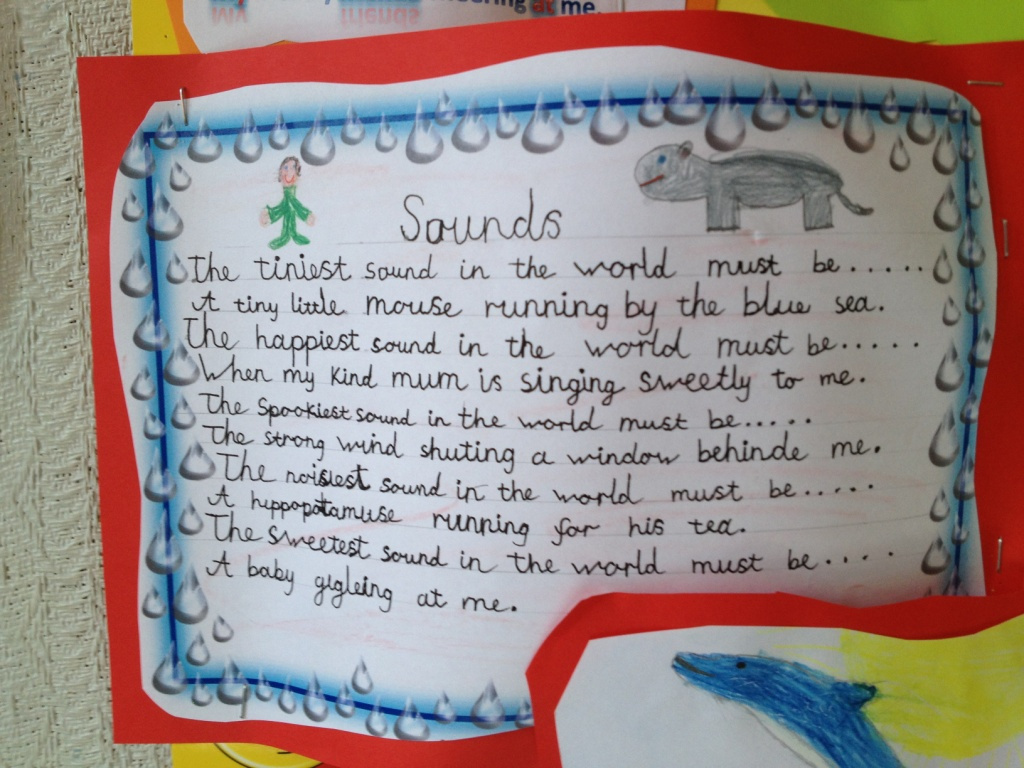 at me.
Sounds
The tiniest sound in the world must be......
A tiny little mouse running by the blue sea.
The happiest sound in the world must be......
When my kind mum is singing sweetly to me.
The spookiest sound in the world must be.....
The strong wind shuting a window behinde me.
The noisiest sound in the world must be.....
A huppopotamuse running for his tea.
The sweetest sound in the world must be....
A baby gigleing at me.